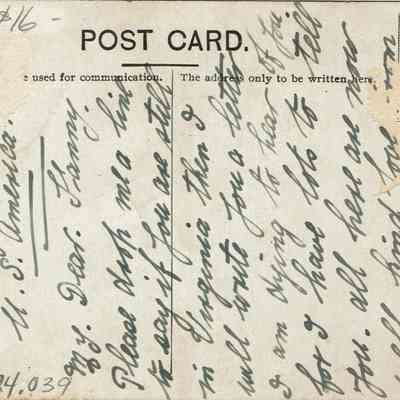 $16-
POST CARD.
e used for communication.
The address only to be written here.
U. S. America.
My Dear Fanny
Please drop me a line
to say if you are still
in Virginia then I
will write you a letter
I am dying to hear of you
for I have lots to tell
you. all here are now
all kind love from
24.039